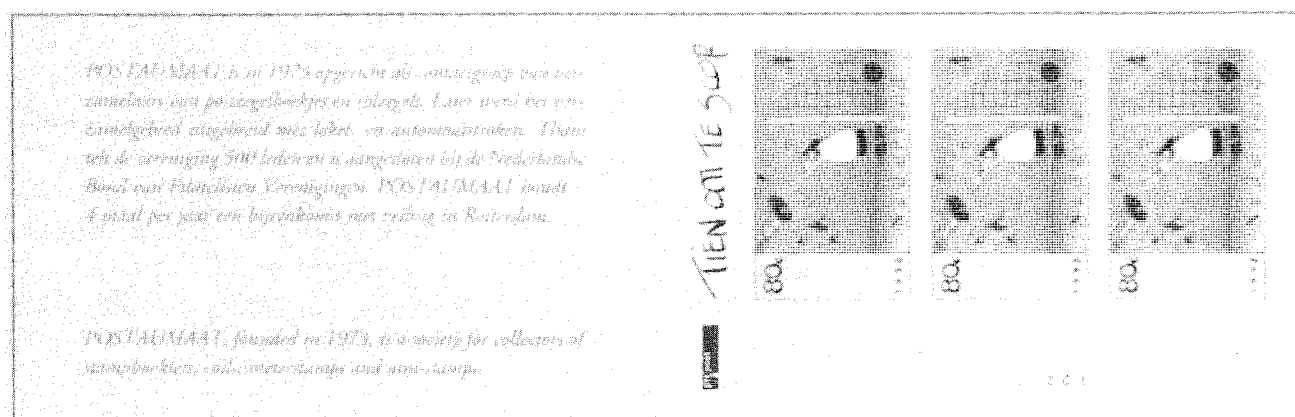 POSTAUMAAT is in 1975 opgericht als contactgroep van ver-
zamelaars van postzegelboekjes en rolzegels. Later werd het ver-
zamelgebied uitgebreid met loket- en automaatstroken. Thans
telt de vereniging 500 leden en is aangesloten bij de Nederlandse
Bond van Filatelisten Verenigingen. POSTAUMAAT houdt
4 maal per jaar een bijeenkomst met veiling in Rotterdam.
POSTAUMAAT, founded in 1975, is a society for collectors of
stampbooklets, coils, meterstamps and atm-stamps.
TIEN OM TE
80c
80c
80c